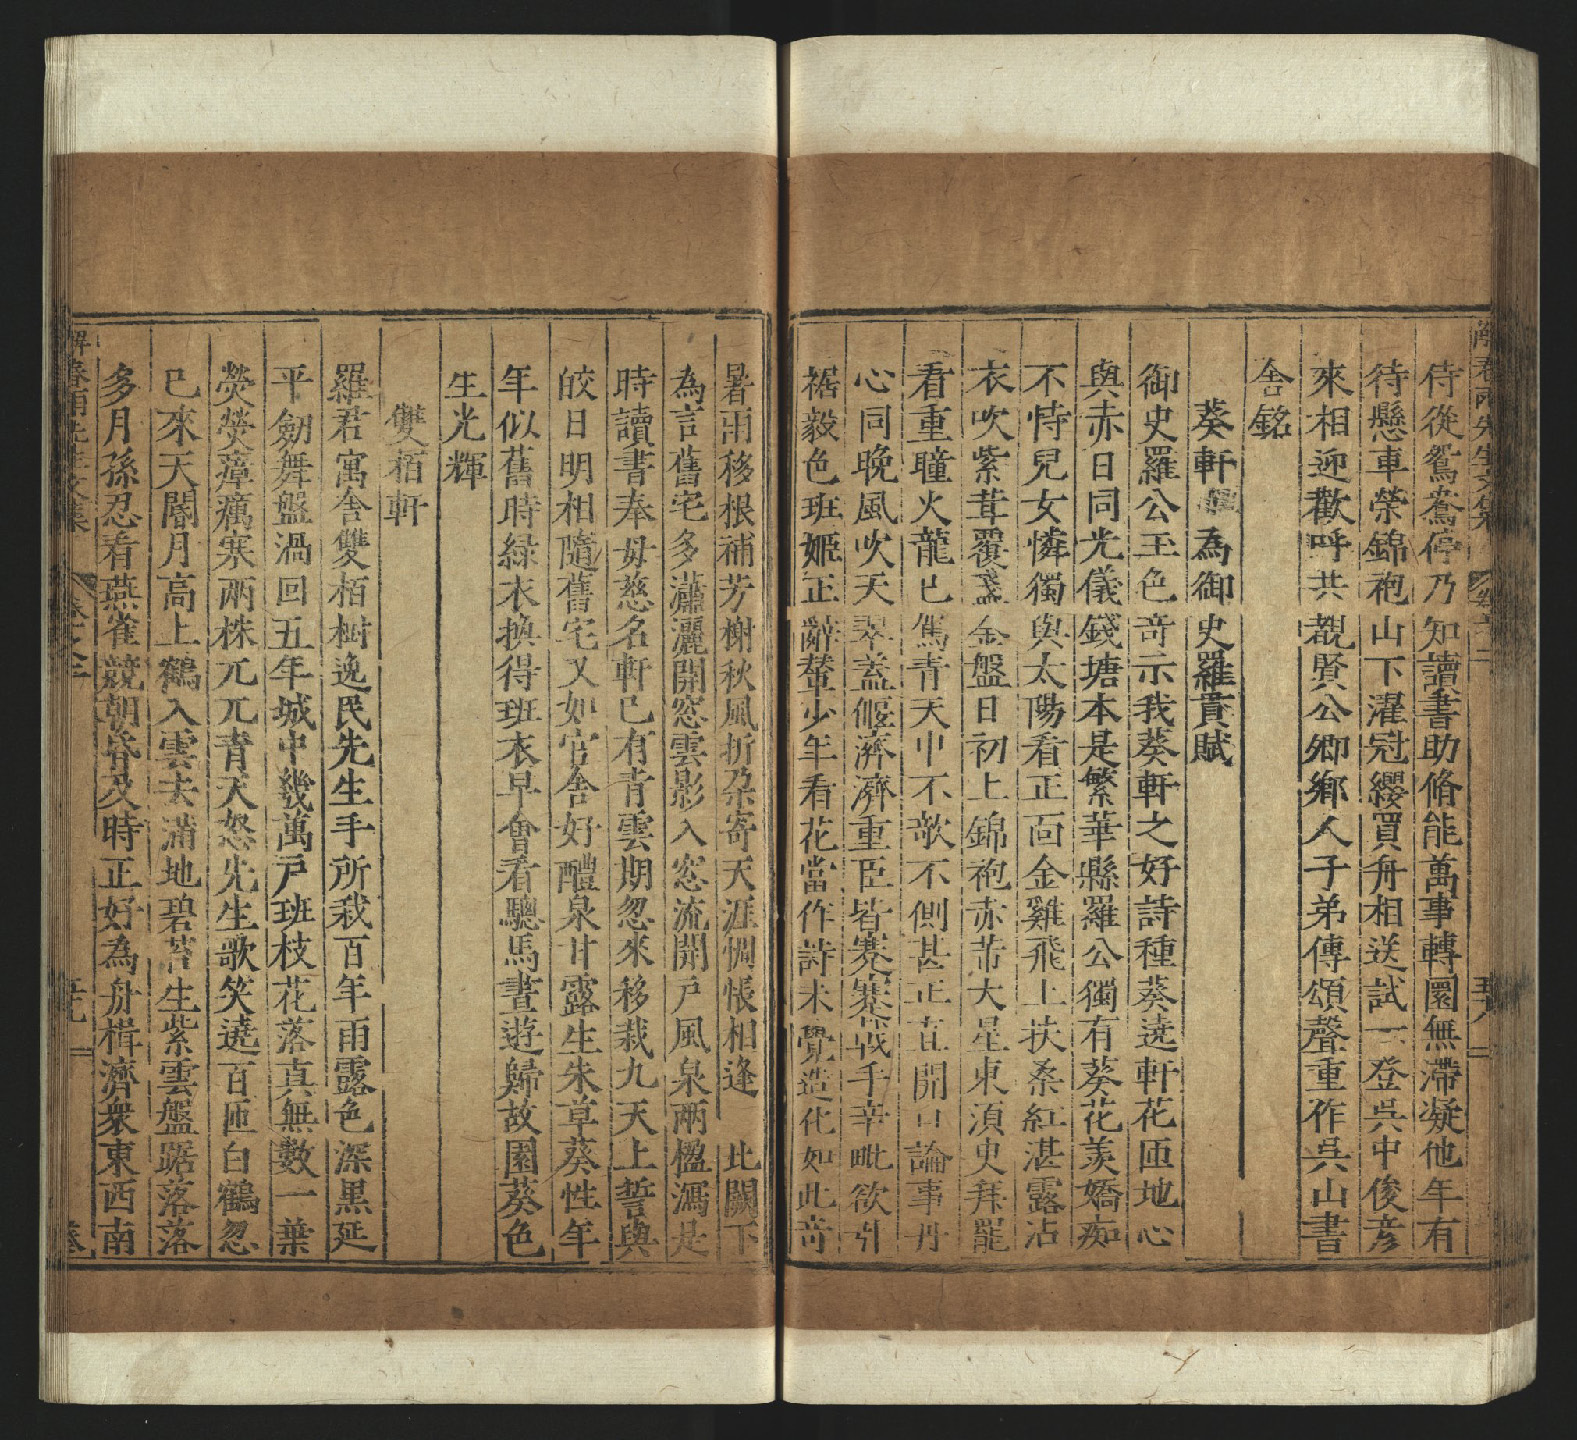 侍從鴛鴦停乃知讀書助脩能萬事轉圜無滯凝他年有
待懸車榮錦袍山下濯冠纓買舟相送試一登吳中俊彥
來相迎歡呼共覩賢公卿鄉人子弟傳頌聲重作吳山書
舍銘
葵軒 為御史羅貫賦
御史羅公玉色奇示我葵軒之好詩種葵遶軒花匝地心
與赤日同光儀錢塘本是繁華縣羅公獨有葵花羨嬌痴
不恃兒女憐獨與太陽看正面金雞飛上扶桑紅湛露沾
衣吹紫茸覆盞金盤日初上錦袍赤芾大星東湏史拜罷
看重瞳火龍已駕青天中不欹不側甚正直開口論事丹
心同晚風吹天翠蓋偃濟濟重臣皆蹇蹇戰手辛毗欲引
裾毅色班姬正辭輦少年看花當作詩未覺造化如此奇
暑雨移根補芳榭秋風折朶寄天涯惆悵相逢北闕下
為言舊宅多瀟灑開窓雲影入窓流開戶風泉兩楹瀉是
時讀書奉母慈名軒已有青雲期忽來移栽九天上誓與
皎日明相隨舊宅又如官舍好醴泉甘露生朱草葵性年
年似舊時緑衣換得班衣早會看驄馬晝遊歸故園葵色
生光輝
雙栢軒
羅君寓舍雙栢樹逸民先生手所栽百年雨露色深黒延
平劒舞盤渦回五年城中幾萬戶班枝花落真無數一葉
熒熒瘴癘寒兩株兀兀青天怒先生歌笑遶百匝白鶴忽
已來天闊月高上鶴入雲去滿地碧苔生紫雲盤踞落落
多月孫忍看燕雀競朝昏及時正好為舟楫濟衆東西南